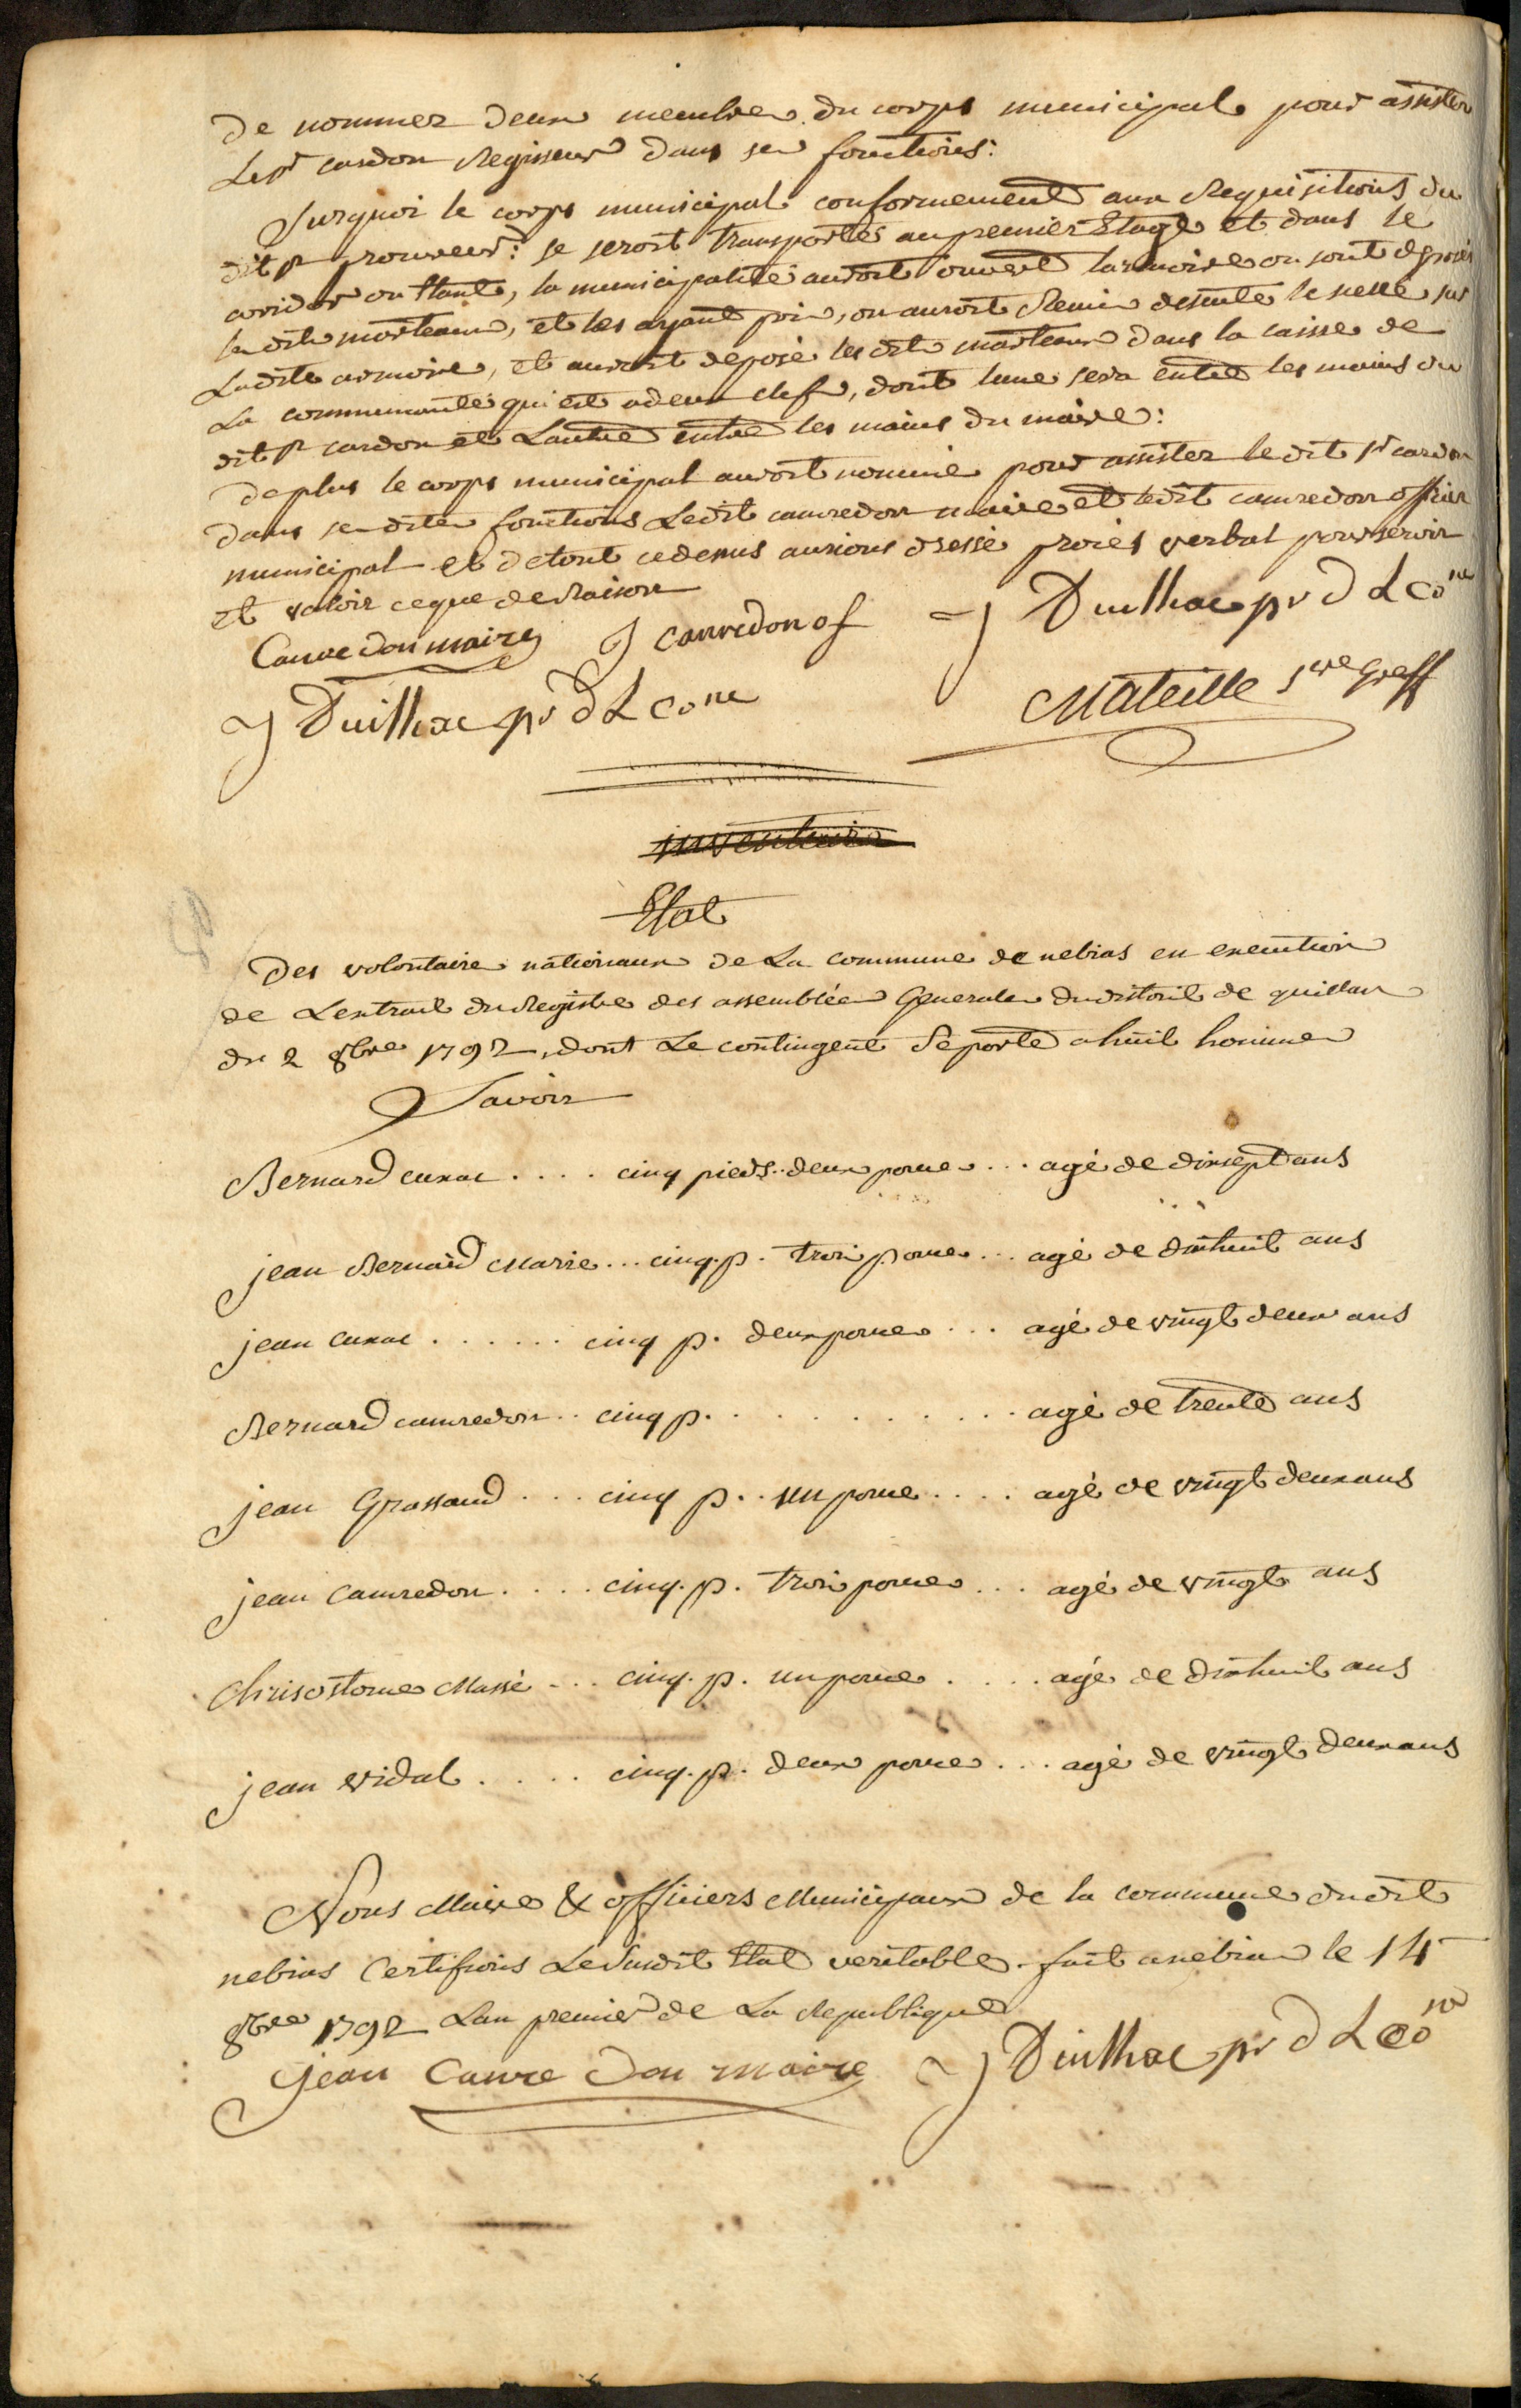 de nommer deux membres du corps municipal pour assister
le sr cardon Regisseur dans ses fonctions:
Surquoi le corps municipal conformement aux Requisitions du
dit sr procureur: se seroit transportés au premier Etage et dans le
corridor en etant, la municipalité auroit ouvert larmoire ou sont deposés
les dits marteaux, et les ayant pris, on auroit Remis desuite le scellé sur
Ladite armoire, et auroit deposé les dits marteaux dans la caisse de
La communauté qui est a deux clefs, dont lune sera entre les mains du
dit sr cardon et Lautre entre les mains du maire:
deplus le corps municipal auroit nommé pour assister le dit sr cardon
dans ses dites fonctions Ledit cauvedon maire et ledit cauvedon officier
municipal et de tout cedessus aurions dressé procés verbal pour servir
et valoir ceque de Raison
Canvedon maire J canvedon of J Duilhac pr d L cone
J Duilhac pr d L cone Mateille sre Greff
inventaire
Etat
Des volontaire nationaux de La commune de nebias en execution
de Lextrait du Registre des assemblées Generales du district de quillan
du 2 8bre 1792, dont Le contingent Se porte a huit hommes
Savoir
Bernard cuxac .... cinq pieds.. deux pouces ... agé de dixsept ans
jean Bernard Marie ... cinq. p. trois pouces ... agé de dixhuit ans
jean cuxac ...... cinq p. deux pouces ... agé de vingt deux ans
Bernard cauvedon .. cinq p. ......... agé de trente ans
jean Grassaud ... cinq p. . un pouce .... agé de vingt deux ans
jean Cauvedon .... cinq. p. trois pouces ... agé de vingt ans
Chrisostome Massé ... cinq. p. un pouce .... agé de dixhuit ans
jean vidal .... cinq. p. deux pouces ... agé de vingt deux ans
Nous Maire & officiers Municipaux de la commune dudit
nebias Certifions Le Susdit Etat veritable. fait a nebias le 14
8bre 1792 Lan premier de La Republique
jean Canve don maire J Duilhac pr d L cone